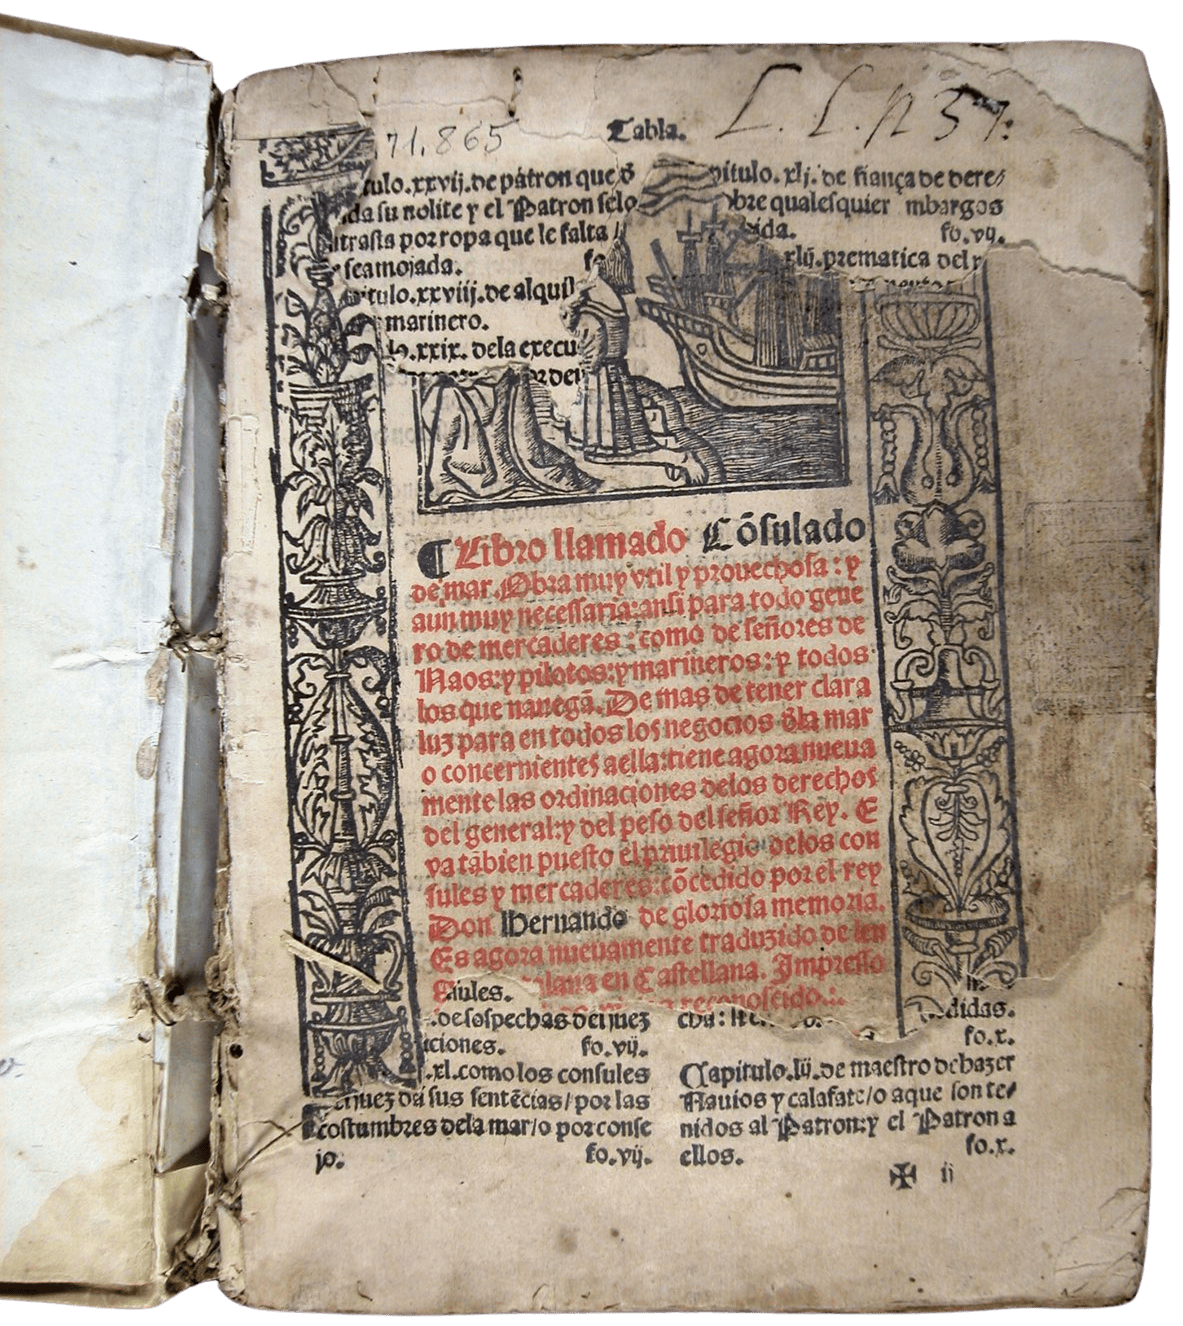 L. L. n 37:
71.865
Tabla.
tulo.xxvij.de patron que
da su nolite y el Patron selo
trasta por ropa que le falta
sea mojada.
itulo.xxviij.de alquil
marinero.
.xxix. dela execu
pitulo.xlj.de fiança de dere/
bre qualesquier mbargos
ida. fo.vij.
xlij.prematica del r
¶ Libro llamado Cõsulado
de mar. Obra muy vtil y prouechosa: y
aun muy necessaria:ansi para todo gene
ro de mercaderes: como de señores de
Naos:y pilotos:y marineros: y todos
los que nauegã. De mas de tener clara
luz para en todos los negocios dela mar
o concernientes aella:tiene agora nueua
mente las ordinaciones delos derechos
del general:y del peso del señor Rey. E
va tãbien puesto el priuilegio delos con
sules y mercaderes:cõcedido por el rey
Don Hernando de gloriosa memoria.
Es agora nueuamente traduzido de len
alana en Castellana. Impresso
reconoscido.
sules.
.de sospechas del juez
iciones. fo.vij.
.xl.como los consules
juez dã sus sentẽcias/por las
costumbres dela mar/o por conse
jo. fo.vij.
didas.
fo.x.
Capitulo.lij.de maestro de hazer
Nauios y calafate/o a que son te/
nidos al Patron:y el Patron a
ellos. fo.x.
✠ ij